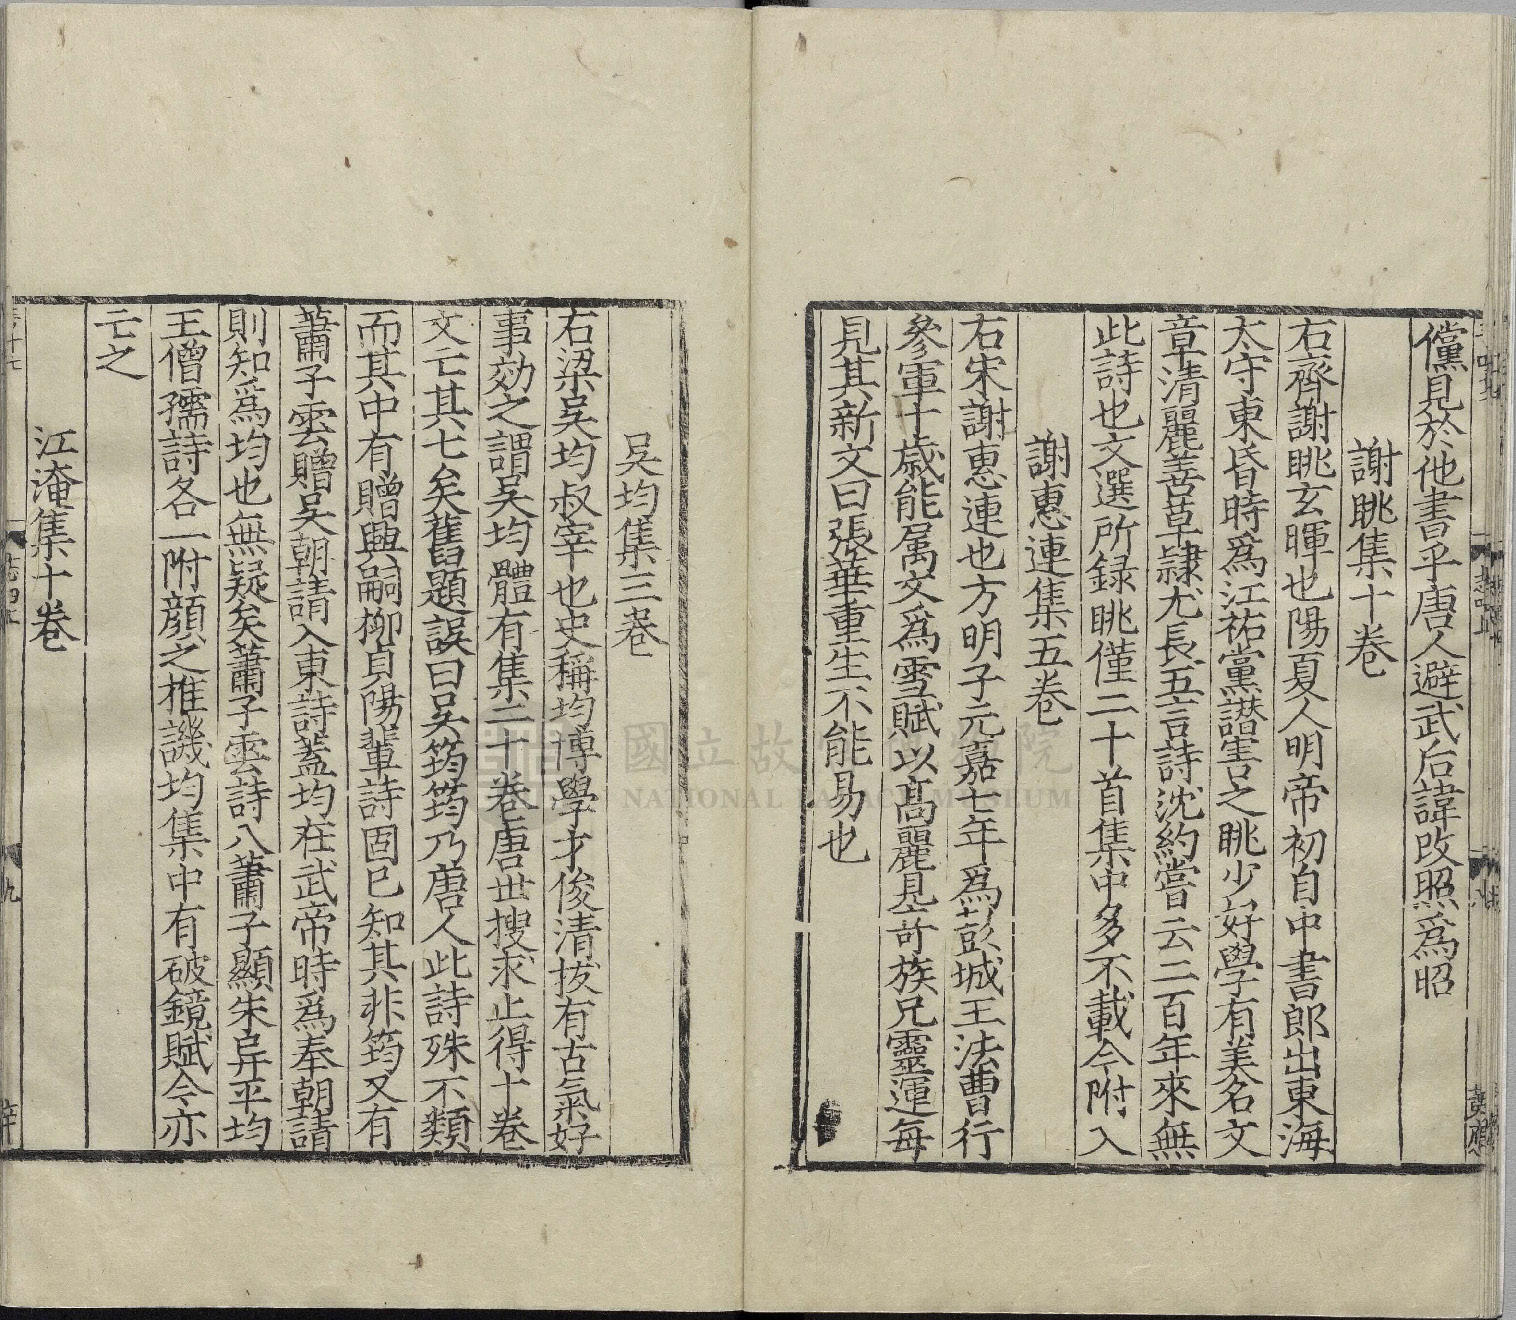 儻見於他書乎唐人避武后諱改照爲昭
謝眺集十卷
右齊謝眺玄暉也陽夏人明帝初自中書郎出東海
太守東昏時爲江祐黨譖害之眺少好學有美名文
章清麗善草隷尤長五言詩沈約嘗云二百年來無
此詩也文選所録眺僅二十首集中多不載今附入
謝惠連集五卷
右宋謝惠連也方明子元嘉七年爲彭城王法曹行
參軍十歳能属文爲雪賦以髙麗見竒族兄靈運每
見其新文曰張華重生不能易也
吳均集三卷
右梁吳均叔宰也史稱均博學才俊清拔有古氣好
事効之謂吳均體有集二十卷唐世搜求止得十卷
文亡其七矣舊題誤曰吳筠筠乃唐人此詩殊不類
而其中有贈興嗣柳貞陽輩詩固已知其非筠又有
蕭子雲贈吳朝請入東詩蓋均在武帝時爲奉朝請
則知爲均也無疑矣蕭子雲詩八蕭子顯朱异平均
王僧孺詩各一附顔之推譏均集中有破鏡賦今亦
亡之
江淹集十卷
九
國立故宮博物院
NATIONAL PALACE MUSEUM